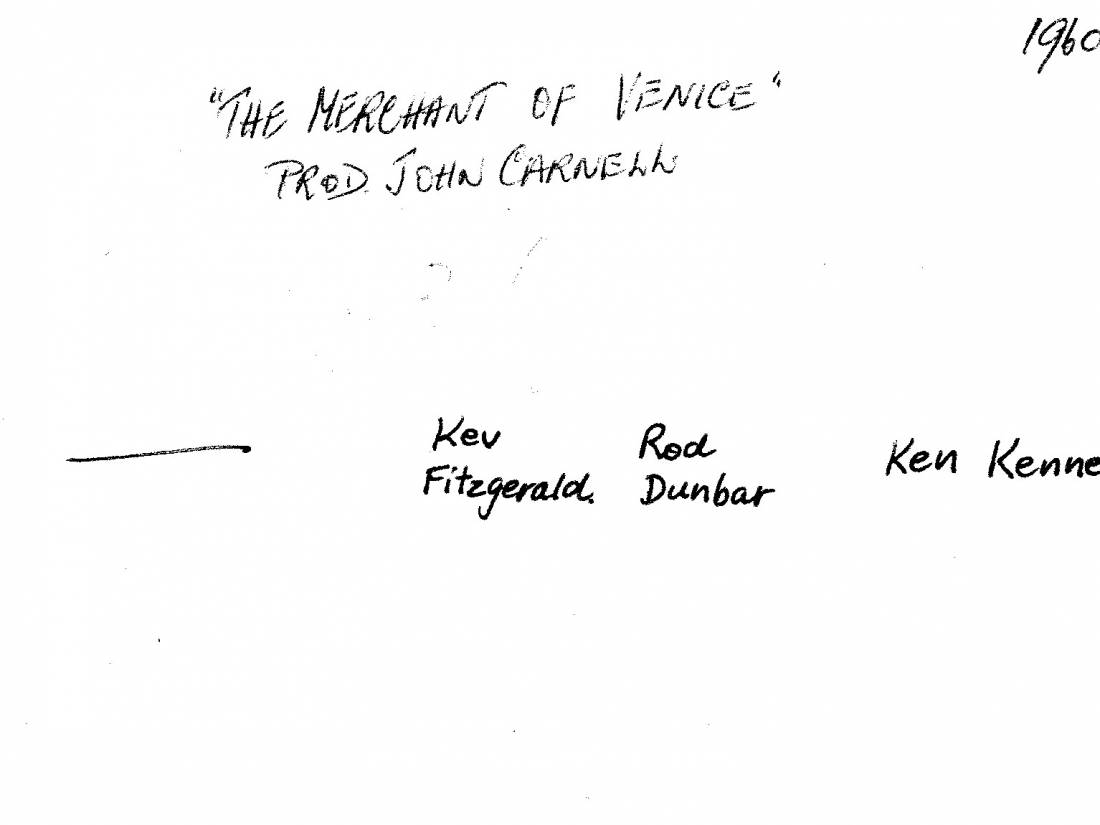 1960
"THE MERCHANT OF VENICE"
PROD. JOHN CARNELL
Kev Rod Ken Kenne
Fitzgerald. Dunbar